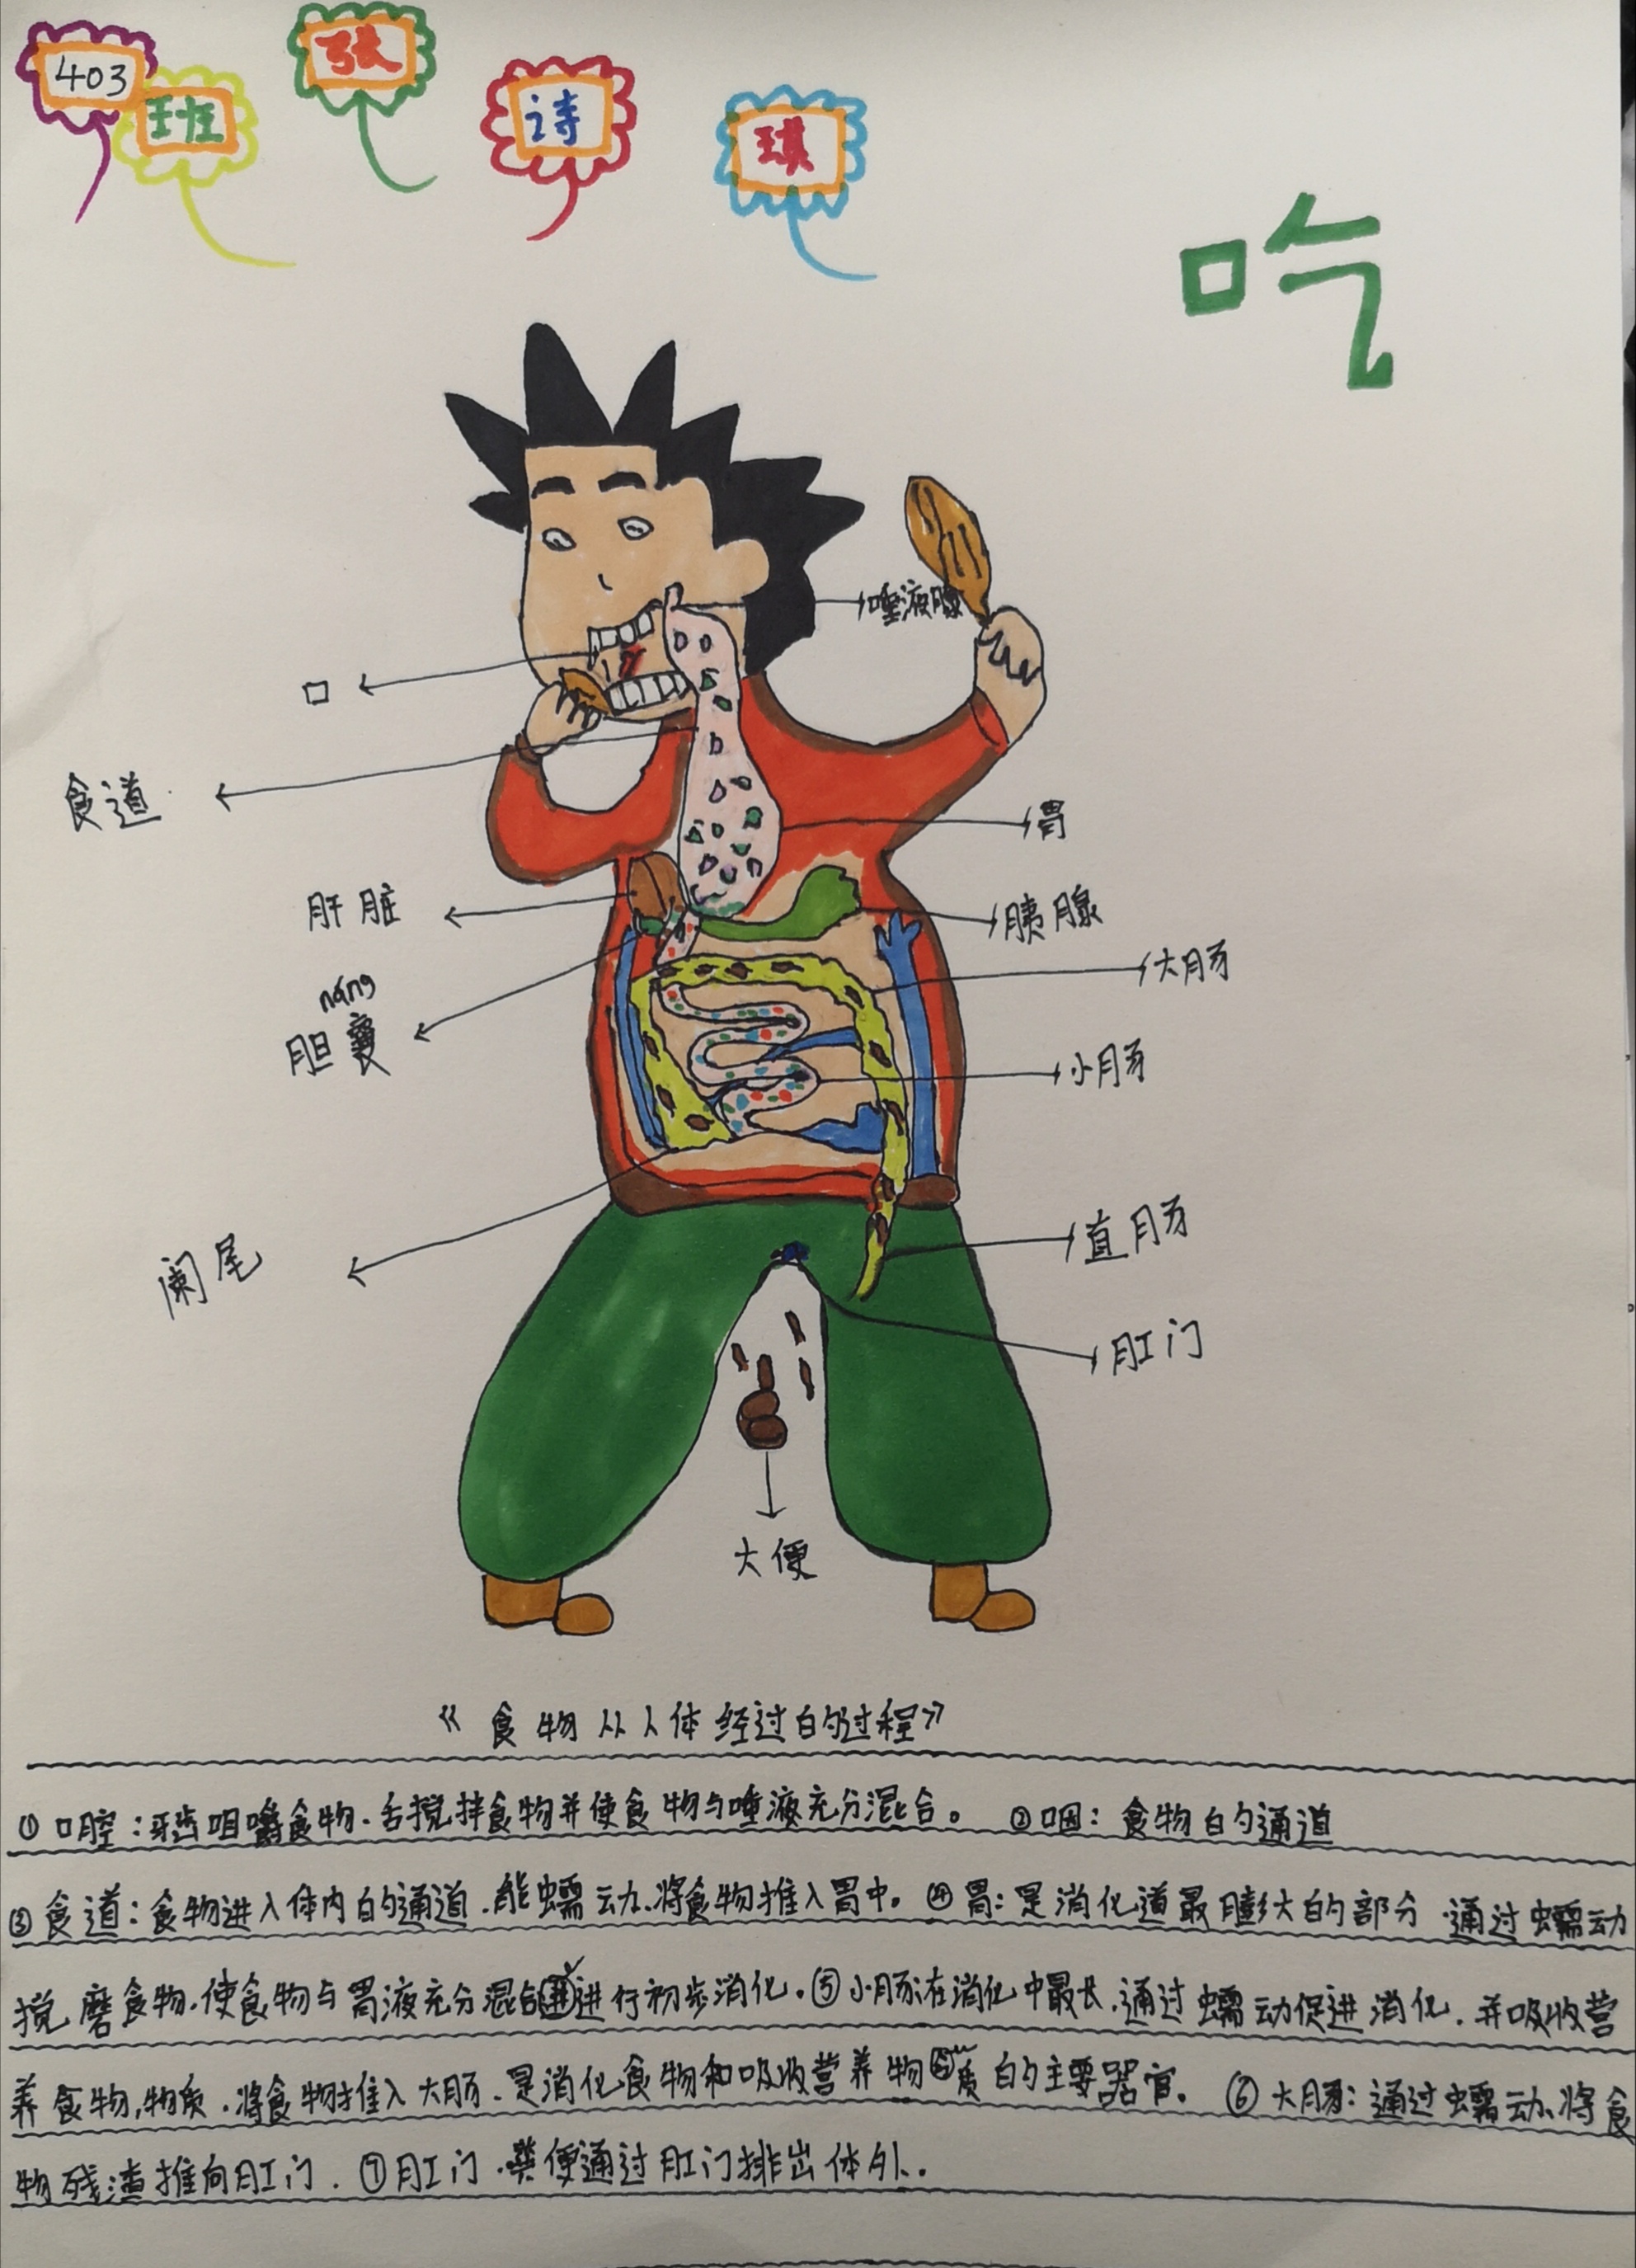 403
班
张
诗
琪
吃
唾液腺
口
食道
胃
肝脏
胰腺
大肠
náng
胆囊
小肠
阑尾
直肠
肛门
大便
《食物从人体经过的过程》
①口腔:牙齿咀嚼食物.舌搅拌食物并使食物与唾液充分混合。 ②咽:食物的通道
③食道:食物进入体内的通道.能蠕动.将食物推入胃中。④胃:是消化道最膨大的部分.通过蠕动
搅磨食物.使食物与胃液充分混合进行初步消化.⑤小肠:在消化中最长.通过蠕动促进消化.并吸收营
养食物,物质.将食物推入大肠.是消化食物和吸收营养物质的主要器官。 ⑥大肠:通过蠕动、将食
物残渣推向肛门.⑦肛门.粪便通过肛门排出体外.